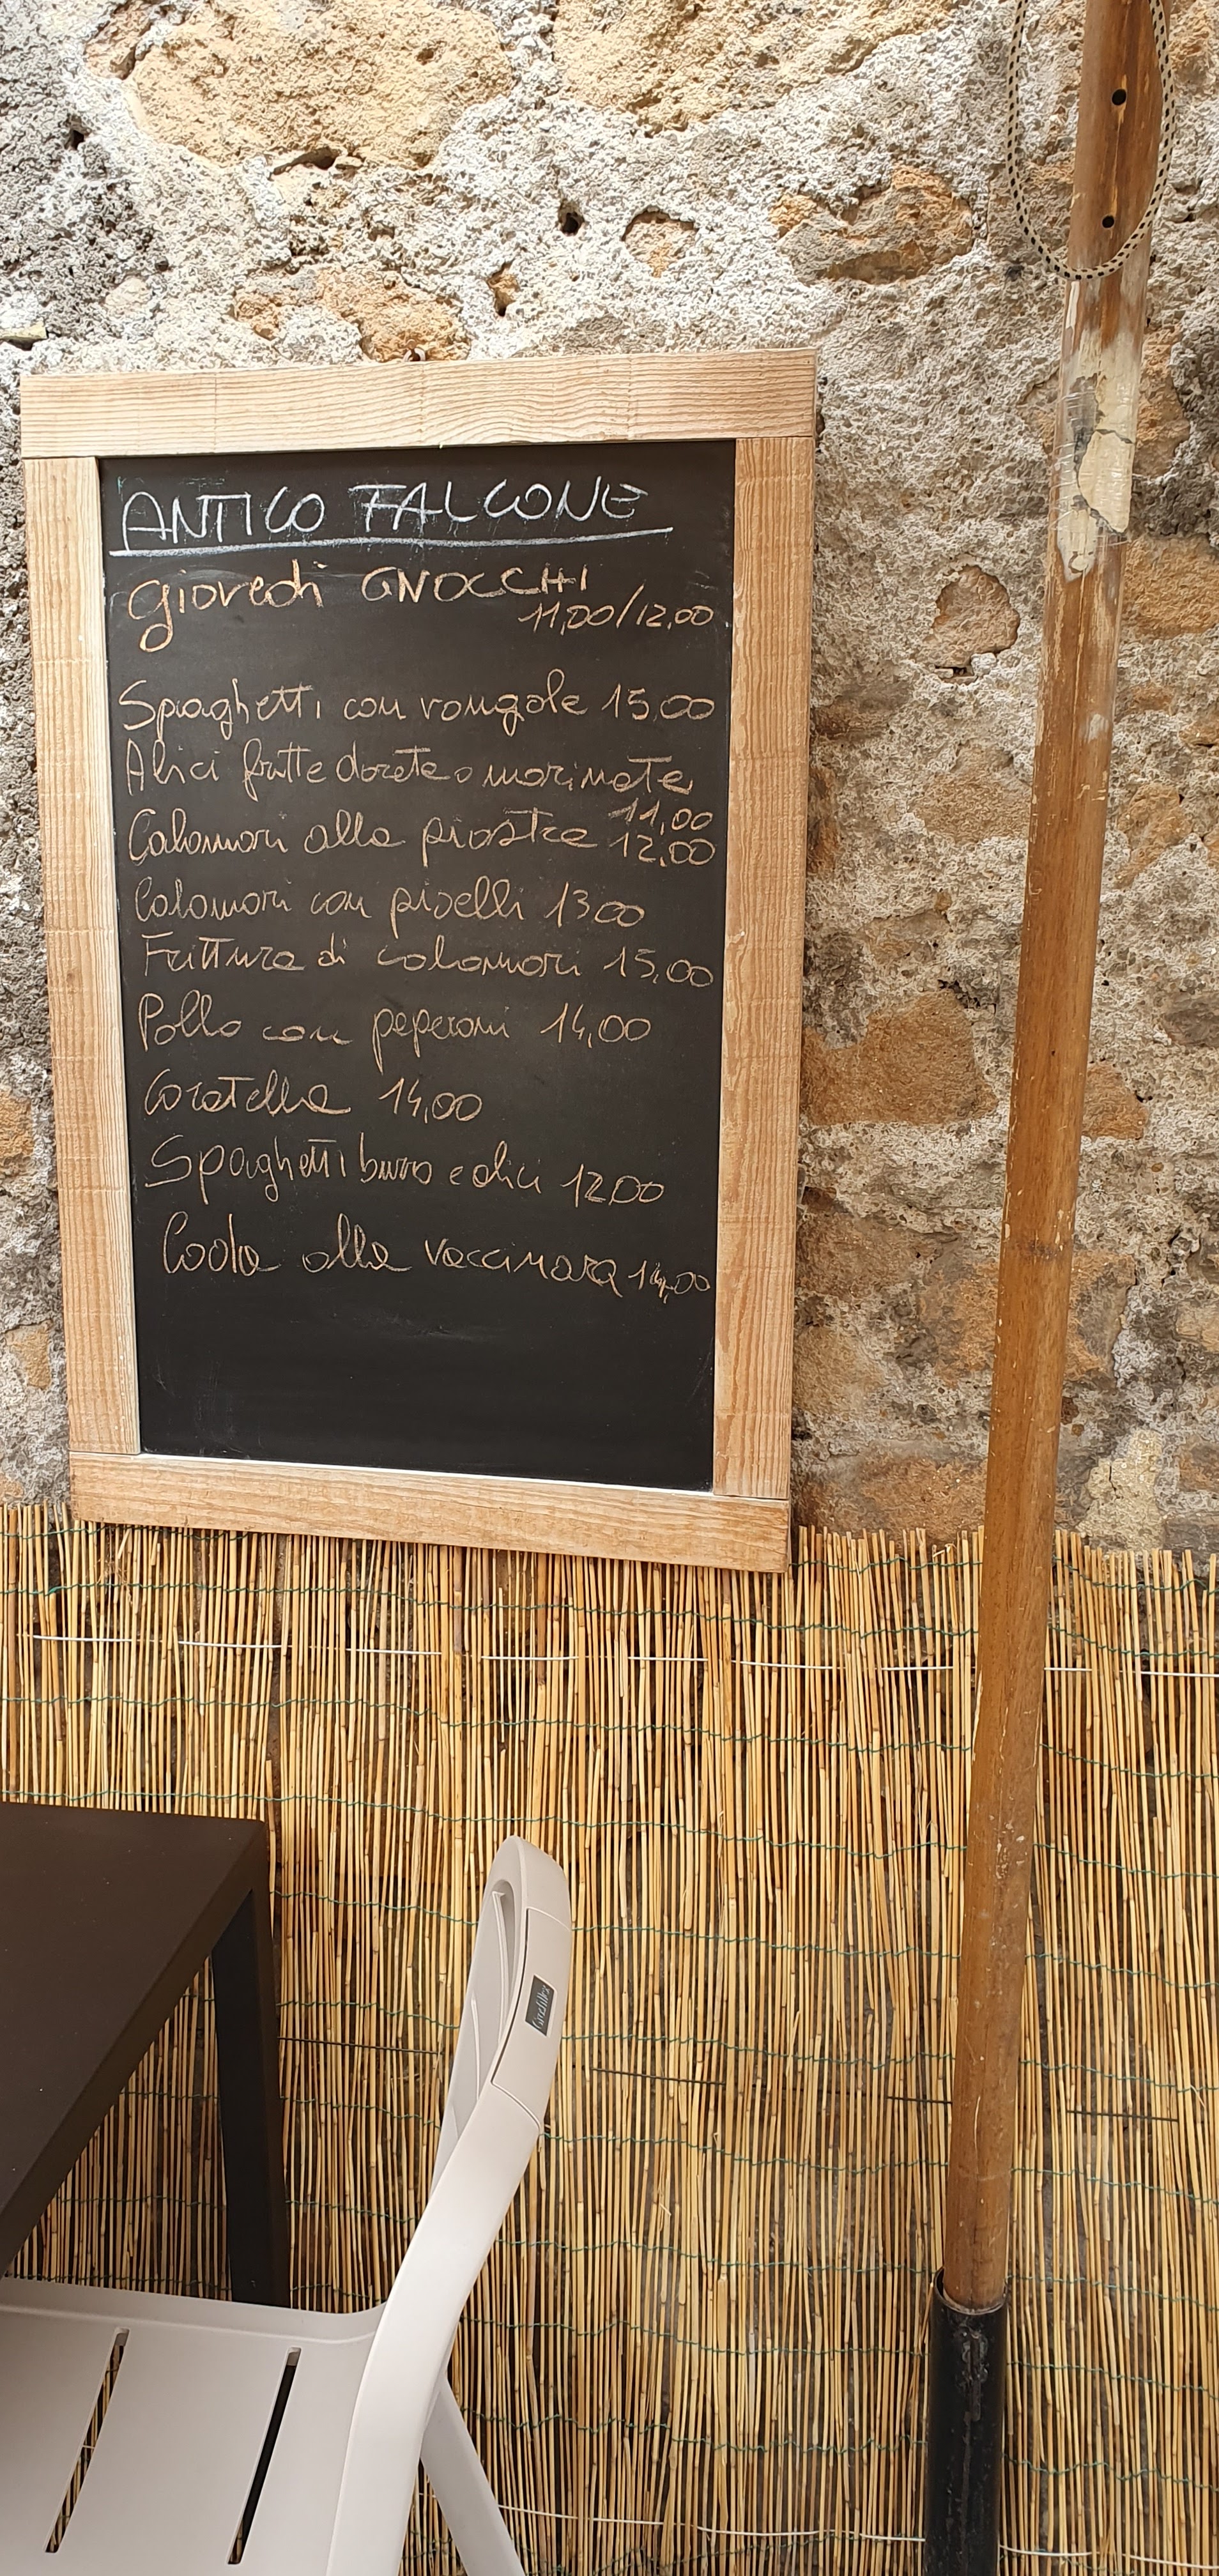 ANTICO FALCONE
giovedì GNOCCHI
11,00/12,00
Spaghetti con vongole 15,00
Alici fritte dorate o marinate
11,00
Calamari alla piastra 12,00
Calamari con piselli 13 00
Frittura di calamari 15,00
Pollo con peperoni 14,00
Coratella 14,00
Spaghetti burro e alici 12,00
Coda alla vaccinara 14,00